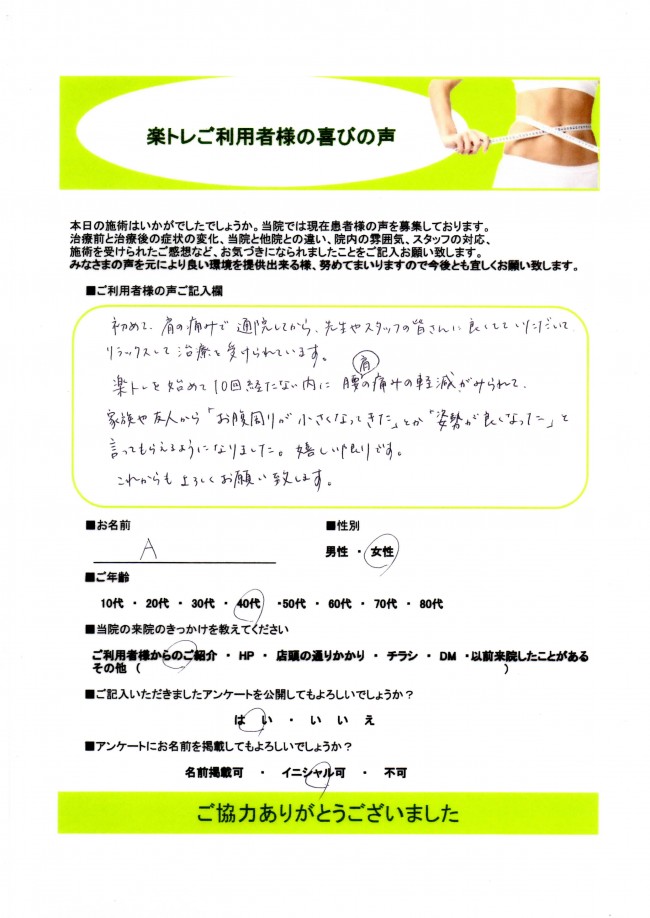 楽トレご利用者様の喜びの声
本日の施術はいかがでしたでしょうか。当院では現在患者様の声を募集しております。
治療前と治療後の症状の変化、当院と他院との違い、院内の雰囲気、スタッフの対応、
施術を受けられたご感想など、お気づきになられましたことをご記入お願い致します。
みなさまの声を元により良い環境を提供出来る様、努めてまいりますので今後とも宜しくお願い致します。
■ご利用者様の声ご記入欄
初めて、肩の痛みで通院してから、先生やスタッフの皆さんに良くしていただいて
リラックスして治療を受けられています。
肩
楽トレを始めて10回経たない内に腰の痛みの軽減がみられて、
家族や友人から「お腹周りが小さくなってきた」とか「姿勢が良くなった」と
言ってもらえるようになりました。嬉しい限りです。
これからもよろしくお願い致します。
■お名前 ■性別
A 男性 ・ 女性
■ご年齢
10代 ・ 20代 ・ 30代 ・ 40代 ・50代 ・ 60代 ・ 70代 ・ 80代
■当院の来院のきっかけを教えてください
ご利用者様からのご紹介 ・ HP ・ 店頭の通りかかり ・ チラシ ・ DM ・以前来院したことがある
その他 ( )
■ご記入いただきましたアンケートを公開してもよろしいでしょうか？
は い ・ い い え
■アンケートにお名前を掲載してもよろしいでしょうか？
名前掲載可 ・ イニシャル可 ・ 不可
ご協力ありがとうございました